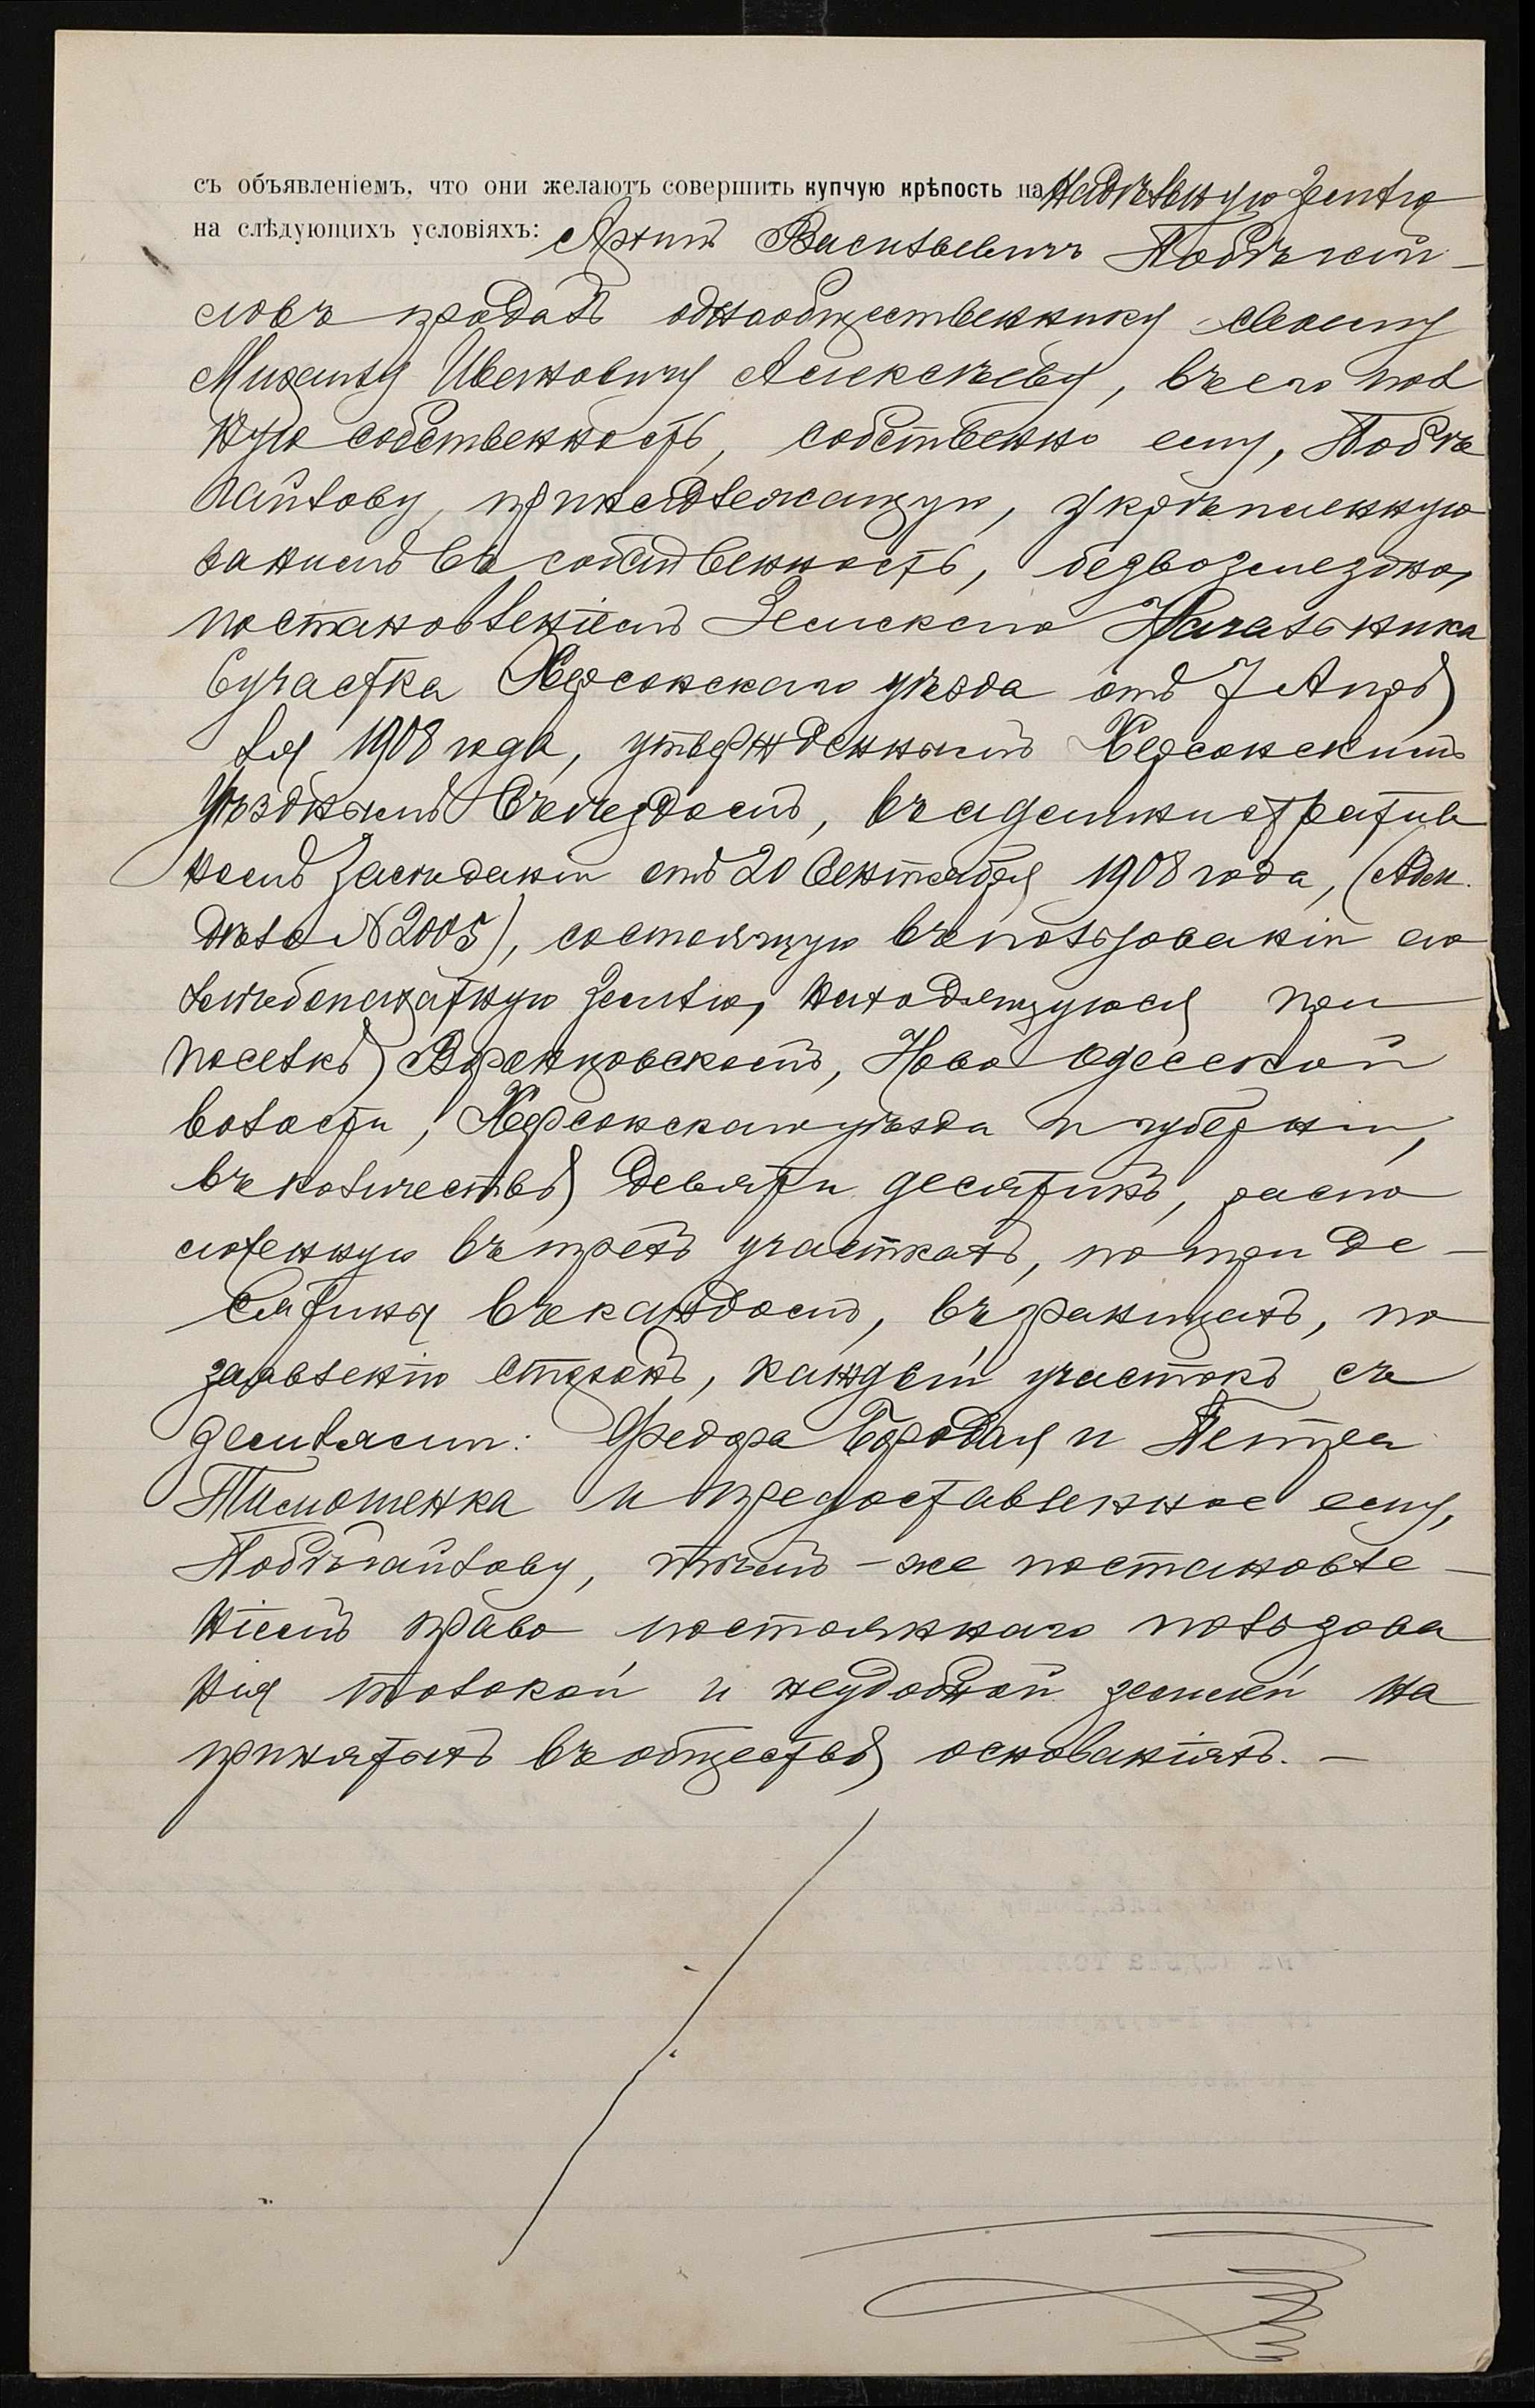 съ объявленіемъ, что они желаютъ совершить купчую крѣпость на надѣльную землю
на слѣдующихъ условіяхъ: Архипъ Васильевичъ Побѣгай-
ловъ продалъ однообщественнику своему
Михаилу Ивановичу Алексѣеву, въ его пол
ную собственность, собственно ему, Побѣ
гайлову, принадлежащую, укрѣпленную
за нимъ въ собственность, безвозмездно,
постановленіемъ Земскаго Начальника
6 участка Херсонскаго уѣзда отъ 7 Апрѣ
ля 1908 года, утвержденнымъ Херсонскимъ
Уѣзднымъ Съѣздомъ, въ административ
номъ засѣданіи отъ 20 Сентября 1908 года, (Адм.
дѣло № 2005), состоящую въ пользованіи его
хлѣбопахатную землю, находящуюся при
поселкѣ Воронцовскомъ, Ново Одесской
волости, Херсонскаго уѣзда и губерніи,
въ количествѣ девяти десятинъ, распо
ложенную въ трехъ участкахъ, по три де-
сятины въ каждомъ, въ границахъ, по
заявленію сторонъ, каждый участокъ съ
землями: Федора Бородая и Петра
Тимошенка и предоставленное ему,
Побѣгайлову, тѣмъ-же постановле-
ніемъ право постояннаго пользова
нія толокой и неудобной землей на
принятыхъ въ обществѣ основаніяхъ. -